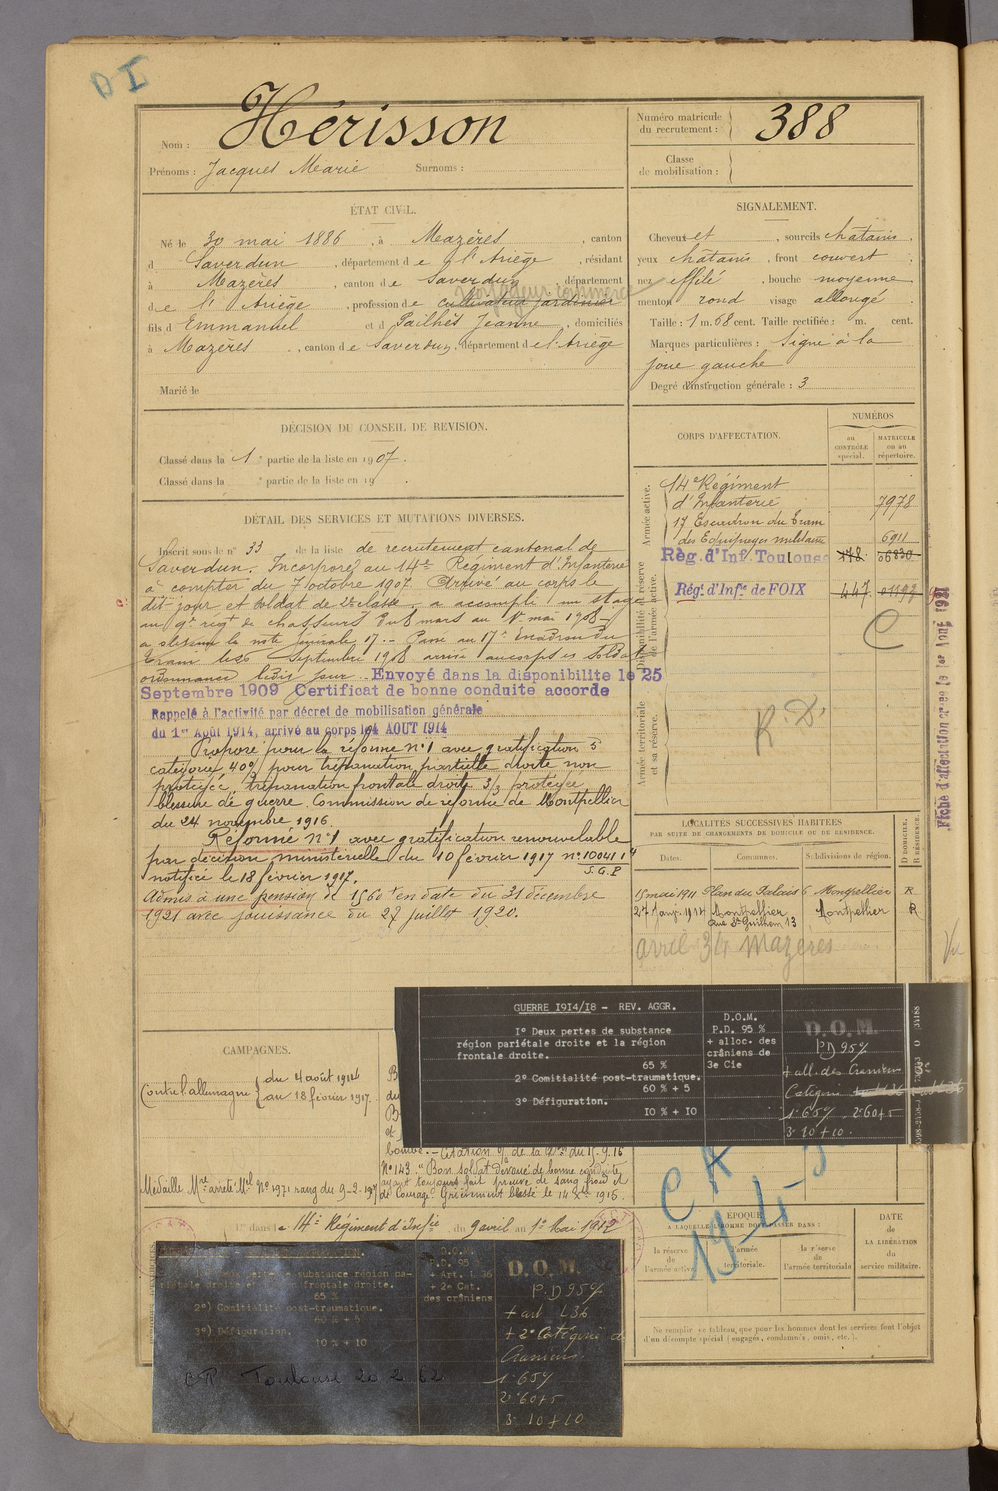 DI
Nom : Hérisson
Prénoms : Jacques Marie Surnoms :
Numéro matricule
du recrutement : 388
Classe
de mobilisation :
ÉTAT CIVIL.
Né le 30 mai 1886, à Mazères, canton
d Saverdun, département de l'Ariège, résidant
à Mazères, canton de Saverdun, département
voyageur commerce
de l'Ariège, profession de cultivateur jardinier
fils d'Emmanuel et d Pailhès Jeanne, domiciliés
à Mazères, canton de Saverdun, département de l'Ariège
Marié le
SIGNALEMENT.
Cheveux et , sourcils châtains.
yeux châtains, front couvert ;
nez effilé, bouche moyenne
menton rond visage allongé
Taille : 1 m. 68 cent. Taille rectifiée : m. cent.
Marques particulières : Signe à la
joue gauche
Degré d'instruction générale : 3
DÉCISION DU CONSEIL DE REVISION.
Classé dans la 1e partie de la liste en 1907.
Classé dans la e partie de la liste en 19
DÉTAIL DES SERVICES ET MUTATIONS DIVERSES.
Inscrit sous le n° 33 de la liste de recrutement cantonal de
Saverdun. Incorporé au 14e Régiment d'Infanterie
à compter du 7 octobre 1907. Arrivé au corps le
dit jour et soldat de 2e classe, a accompli un stage
au 9e régt de chasseurs du 8 mars au 1er mai 1908
a obtenu la note 17. - Passé au 17e Escadron du
Train le Septembre 1908 arrivé au corps et Soldat
ordonnance ledit jour. Envoyé dans la disponibilité le 25
Septembre 1909 Certificat de bonne conduite accordé
Rappelé à l'activité par décret de mobilisation générale
du 1er Août 1914, arrivé au corps le 4 AOUT 1914
Proposé pour la réforme n°1 avec gratification 5e
catégorie 40% pour trépanation pariétale droite non
protégée, trépanation frontale droite protégée
blessure de guerre. Commission de réforme de Montpellier
du 24 novembre 1916.
Réformé n°1 avec gratification renouvelable
par décision ministérielle du 10 février 1917 n° 10041
S.G.P
notifiée le 18 février 1917.
Admis à une pension de 1560 f en date du 31 décembre
1921 avec jouissance du 27 juillet 1920.
CORPS D'AFFECTATION.
NUMÉROS
au
CONTRÔLE
spécial.
MATRICULE
ou au
répertoire.
Armée active.
14e Régiment
d'Infanterie 7978
17 Escadron du Train
des Equipages militaires 6911
Disponibilité et réserve
de l'armée active.
Règ. d'Inf. Toulouse 178
Régt d'Infie de FOIX 447
C
Armée territoriale
et sa réserve.
R.D.
Fiche d'affectation
LOCALITÉS SUCCESSIVES HABITÉES
PAR SUITE DE CHANGEMENTS DE DOMICILE OU DE RÉSIDENCE.
D DOMICILE.
R RÉSIDENCE.
Dates. Communes. Subdivisions de région.
15 mai 1911 Plan du Palais 6 Montpellier R
27 janv. 1914 Montpellier Montpellier R
Rue St Guilhem 13
avril 34 Mazères
Vu
GUERRE 1914/18 - REV. AGGR.
1° Deux pertes de substance
région pariétale droite et la région
frontale droite.
65 %
2° Comitialité post-traumatique.
60 % + 5
3° Défiguration.
10 % + 10
D.O.M.
P.D. 95 %
+ alloc. des
crâniens de
3e Cie
D.O.M.
PD 95%
+ all. des Craniens
Catégorie
1° 65% 2° 60+5
3- 10+10.
CAMPAGNES.
Contre l'allemagne { du 4 août 1914
au 18 février 1917.
Citation de la du 15.9.16
N° 143. "Bon soldat dévoué de bonne conduite,
ayant toujours fait preuve de sang froid et
de courage. Grièvement blessé le 14 1916.
Médaille Mre arrêté Mel N° 1971 rang du 9-2-1917
dans le 14e Régiment d'Infie, du 9 avril au 1er Mai 1912
EPOQUE
A LAQUELLE L'HOMME DOIT PASSER DANS :
la réserve
de l'armée active
l'armée
territoriale.
la réserve
de l'armée territoriale
DATE
de
LA LIBÉRATION
du
service militaire.
Ne remplir ce tableau, que pour les hommes dont les services font l'objet
d'un décompte spécial (engagés, condamnés, omis, etc.).
substance région pa-
riétale droite et frontale droite.
65 %
2°) Comitialité post-traumatique.
60 % + 5
3°) Défiguration.
10 % + 10
D.O.M.
P.D. 95
+ Art. 36
+ 2e Cat.
des crâniens
D.O.M.
P.D 95%
+ art L36
+ 2e Catégorie de
Craniens.
1° 65%
2° 60+5
3- 10+10
Toulouse 20 2 62